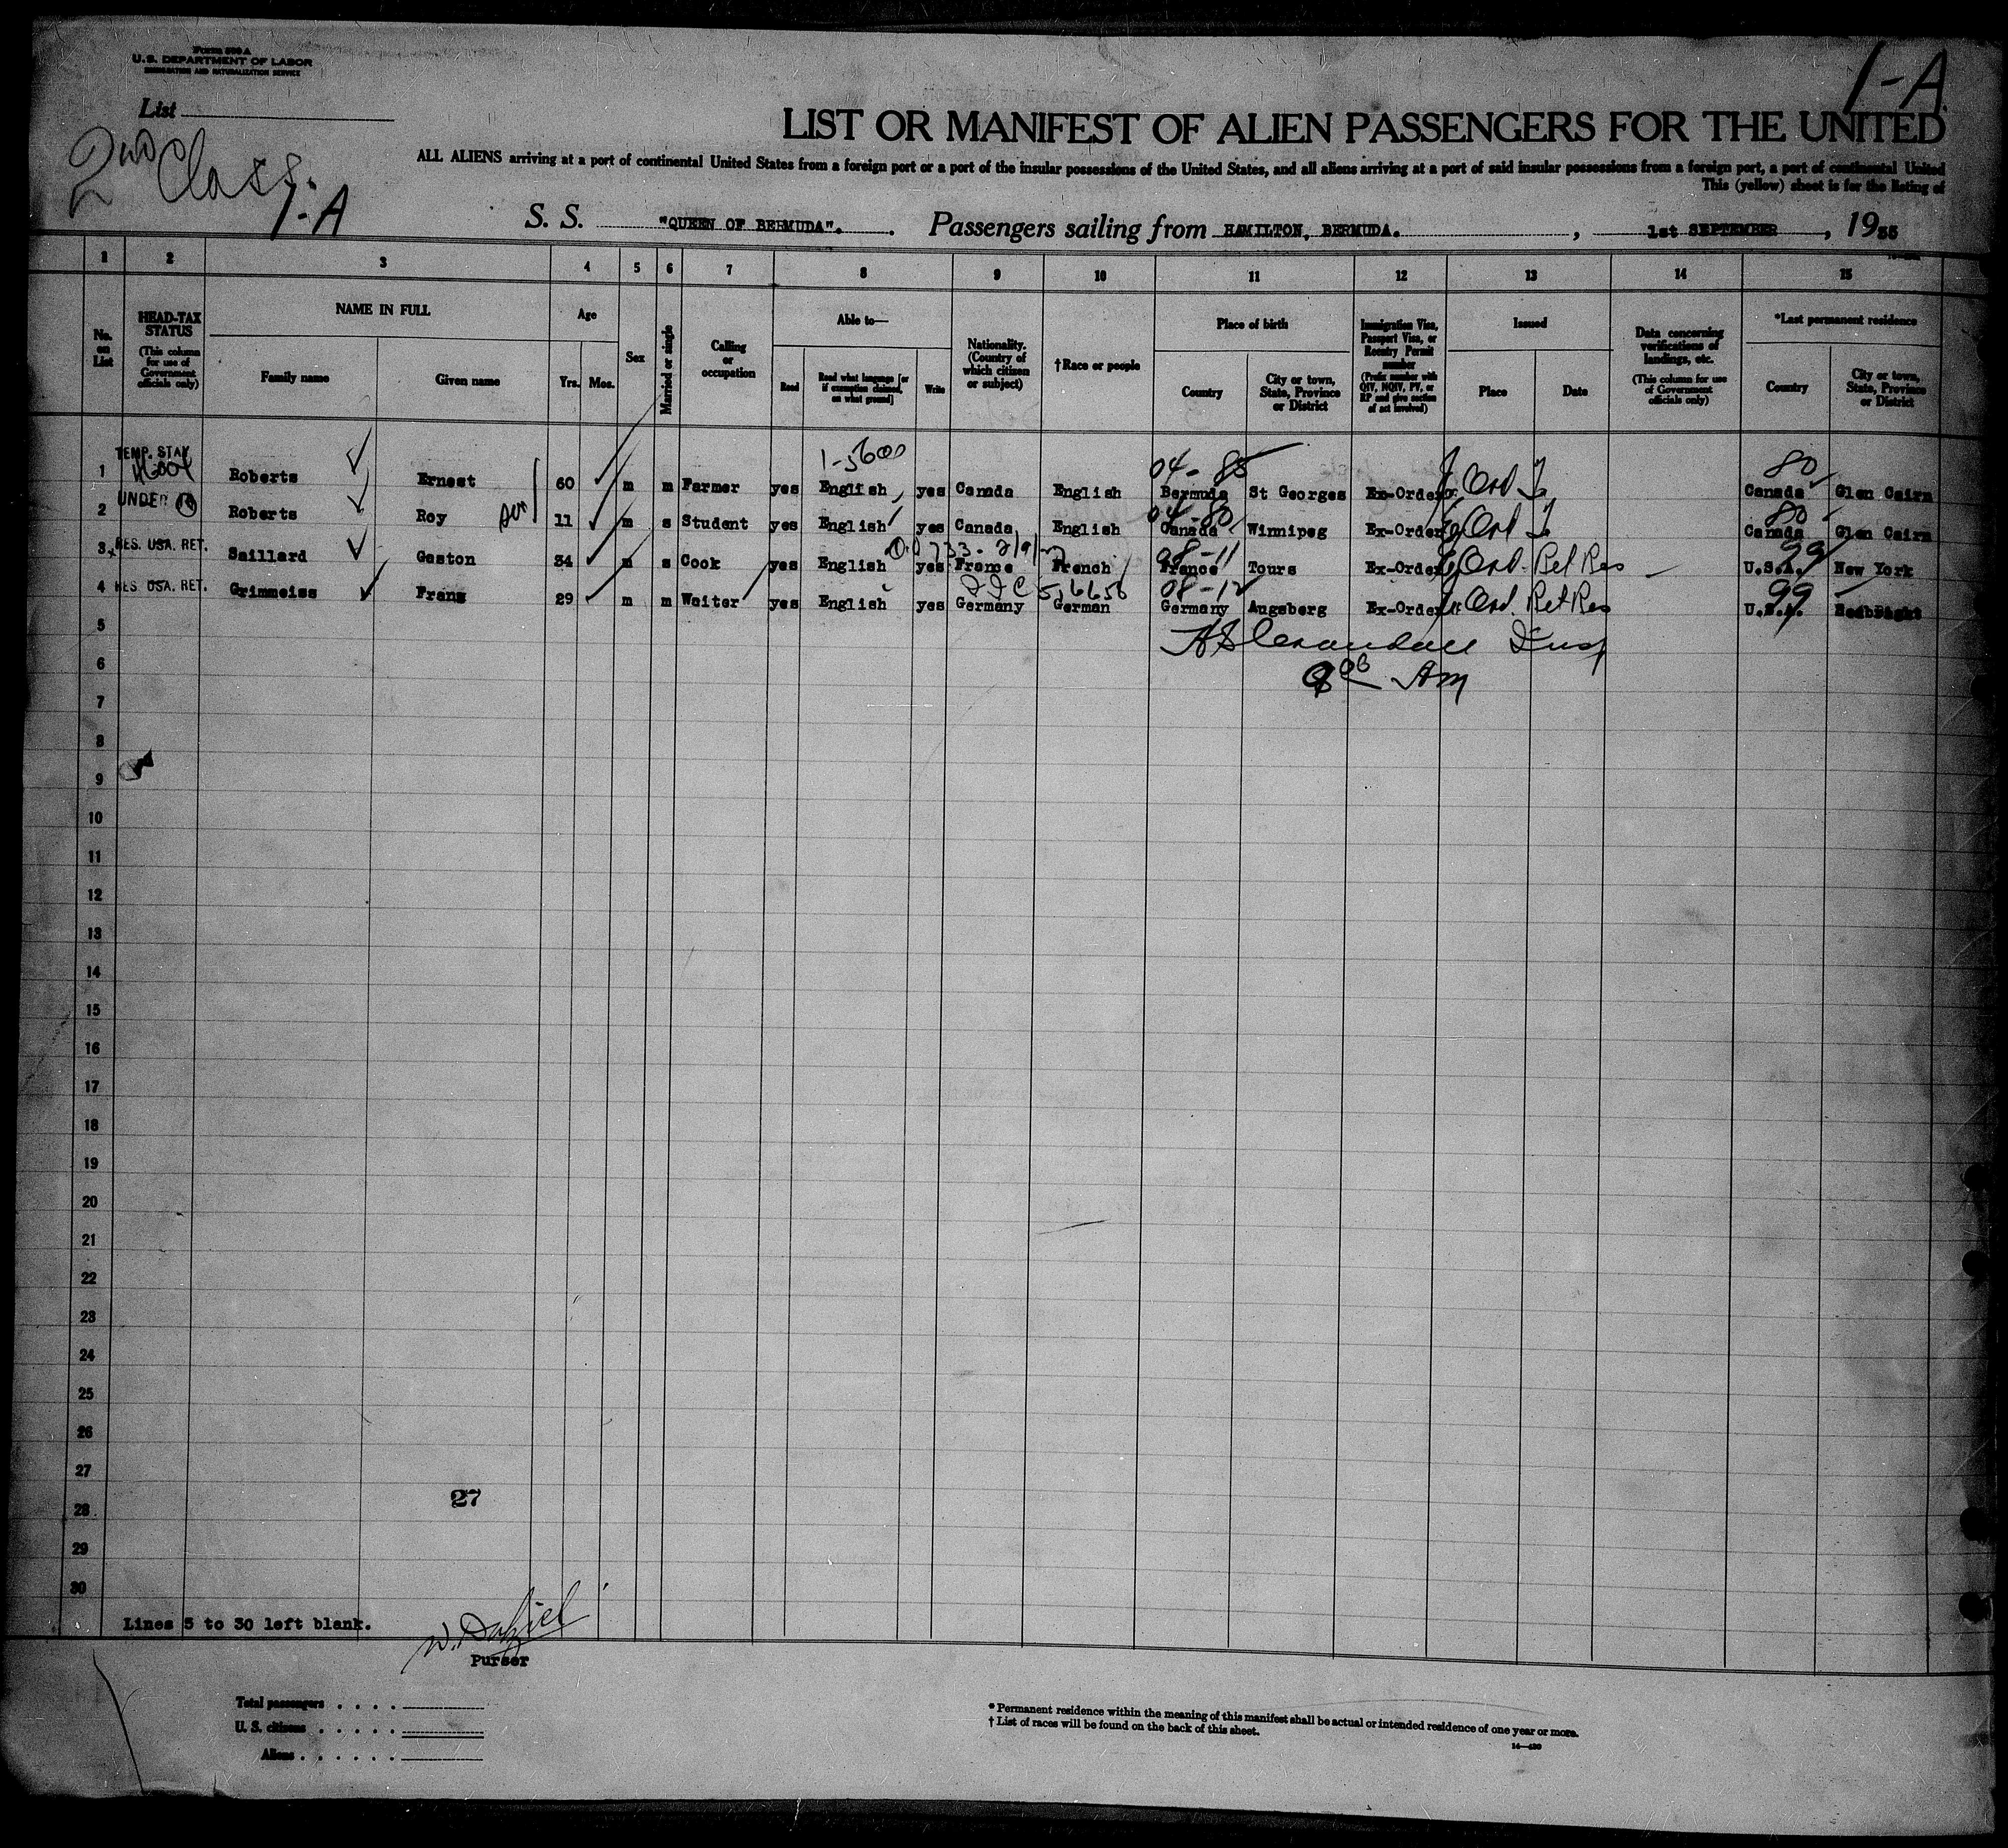 Form 500 A
U. S. DEPARTMENT OF LABOR
IMMIGRATION AND NATURALIZATION SERVICE
1-A
List
LIST OR MANIFEST OF ALIEN PASSENGERS FOR THE UNITED
2nd Class.
1-A
ALL ALIENS arriving at a port of continental United States from a foreign port or a port of the insular possessions of the United States, and all aliens arriving at a port of said insular possessions from a foreign port, a port of continental United
This (yellow) sheet is for the listing of
S. S. "QUEEN OF BERMUDA". Passengers sailing from HAMILTON, BERMUDA. , 1st SEPTEMBER , 1935
1 2 3 4 5 6 7 8 9 10 11 12 13 14 15
No. on List
HEAD-TAX STATUS
(This column for use of Government officials only)
NAME IN FULL
Family name Given name
Age
Yrs. Mos.
Sex
Married or single
Calling or occupation
Able to—
Read Read what language [or if exemption claimed, on what ground] Write
Nationality. (Country of which citizen or subject)
†Race or people
Place of birth
Country City or town, State, Province or District
Immigration Visa, Passport Visa, or Reentry Permit number
(Prefix number with QIV, NQIV, PV, or RP and give section of act involved)
Issued
Place Date
Data concerning verifications of landings, etc.
(This column for use of Government officials only)
*Last permanent residence
Country City or town, State, Province or District
TEMP. STAY 1-5600 04-85 80
1 Roberts Ernest 60 m m Farmer yes English yes Canada English Bermuda St Georges Ex-Order Canada Glen Cairn
UNDER 16 04-80 80
2 Roberts Roy son 11 m s Student yes English yes Canada English Canada Winnipeg Ex-Order Canada Glen Cairn
RES. USA. RET. 08-11 99
3 Saillard Gaston 34 m s Cook yes English yes France French France Tours Ex-Order Ret Res U.S.A. New York
RES. USA. RET. 08-12 99
4 Grimmeiss Franz 29 m m Waiter yes English yes Germany German Germany Augsberg Ex-Order Ret Res U.S.A.
5
6
Am
7
8
9
10
11
12
13
14
15
16
17
18
19
20
21
22
23
24
25
26
27
27
28
29
30
Lines 5 to 30 left blank.
W. Dalziel
Purser
Total passengers . . . .
U. S. citizens . . . . .
Aliens . . . . . .
* Permanent residence within the meaning of this manifest shall be actual or intended residence of one year or more.
† List of races will be found on the back of this sheet.
14—430